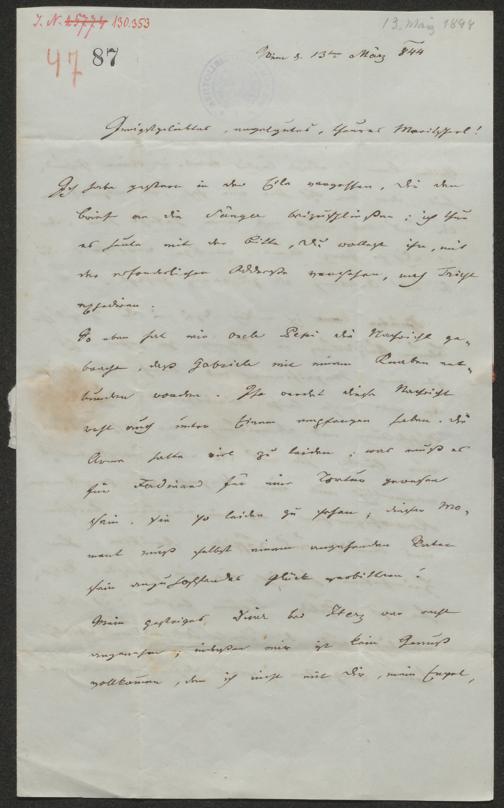 I. N. 25774 130.353
13. März 1844
47
87
Wien d. 13ten März 844
Innigstgeliebtes, engelgutes, theures Moritzerl!
Ich habe gestern in der Eile vergessen, Dir den
Brief an die Sänger beizuschließen; ich thue
es heute mit der Bitte, Du wollest ihn, mit
der erforderlichen Addresse versehen, nach Triest
expediren.
So eben hat mir Onkel Pepi die Nachricht ge-
bracht, daß Gabriele mit einem Knaben ent-
bunden worden. Ihr werdet diese Nachricht
wohl auch unter Einem empfangen haben. Die
Arme hatte viel zu leiden; was muß es
für Ferdinand für eine Tortur gewesen
sein, sie so leiden zu sehen; dieser Mo-
ment muß selbst einem angehenden Vater
sein anzuhoffendes Glück verbittern!
Mein gestriges Diner bei war recht
angenehm; indessen mir ist kein Genuß
vollkommen, den ich nicht mit Dir, mein Engel,